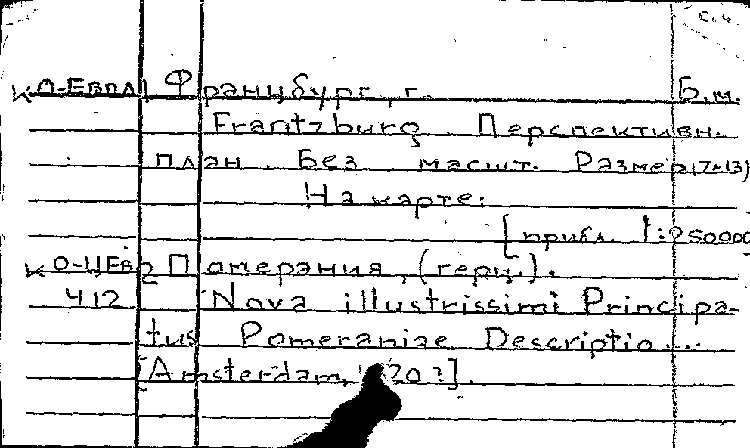 с.4
Францбург, г. Б.м.
Frantzburg Перспективн.
план. Без масшт. Размер (7×13)
На карте:
[прибл. 1:250000
Померания, (герц.).
412 Nova illustrissimi Principa-
tus Pomeraniae Descriptio...
[Amsterdam,